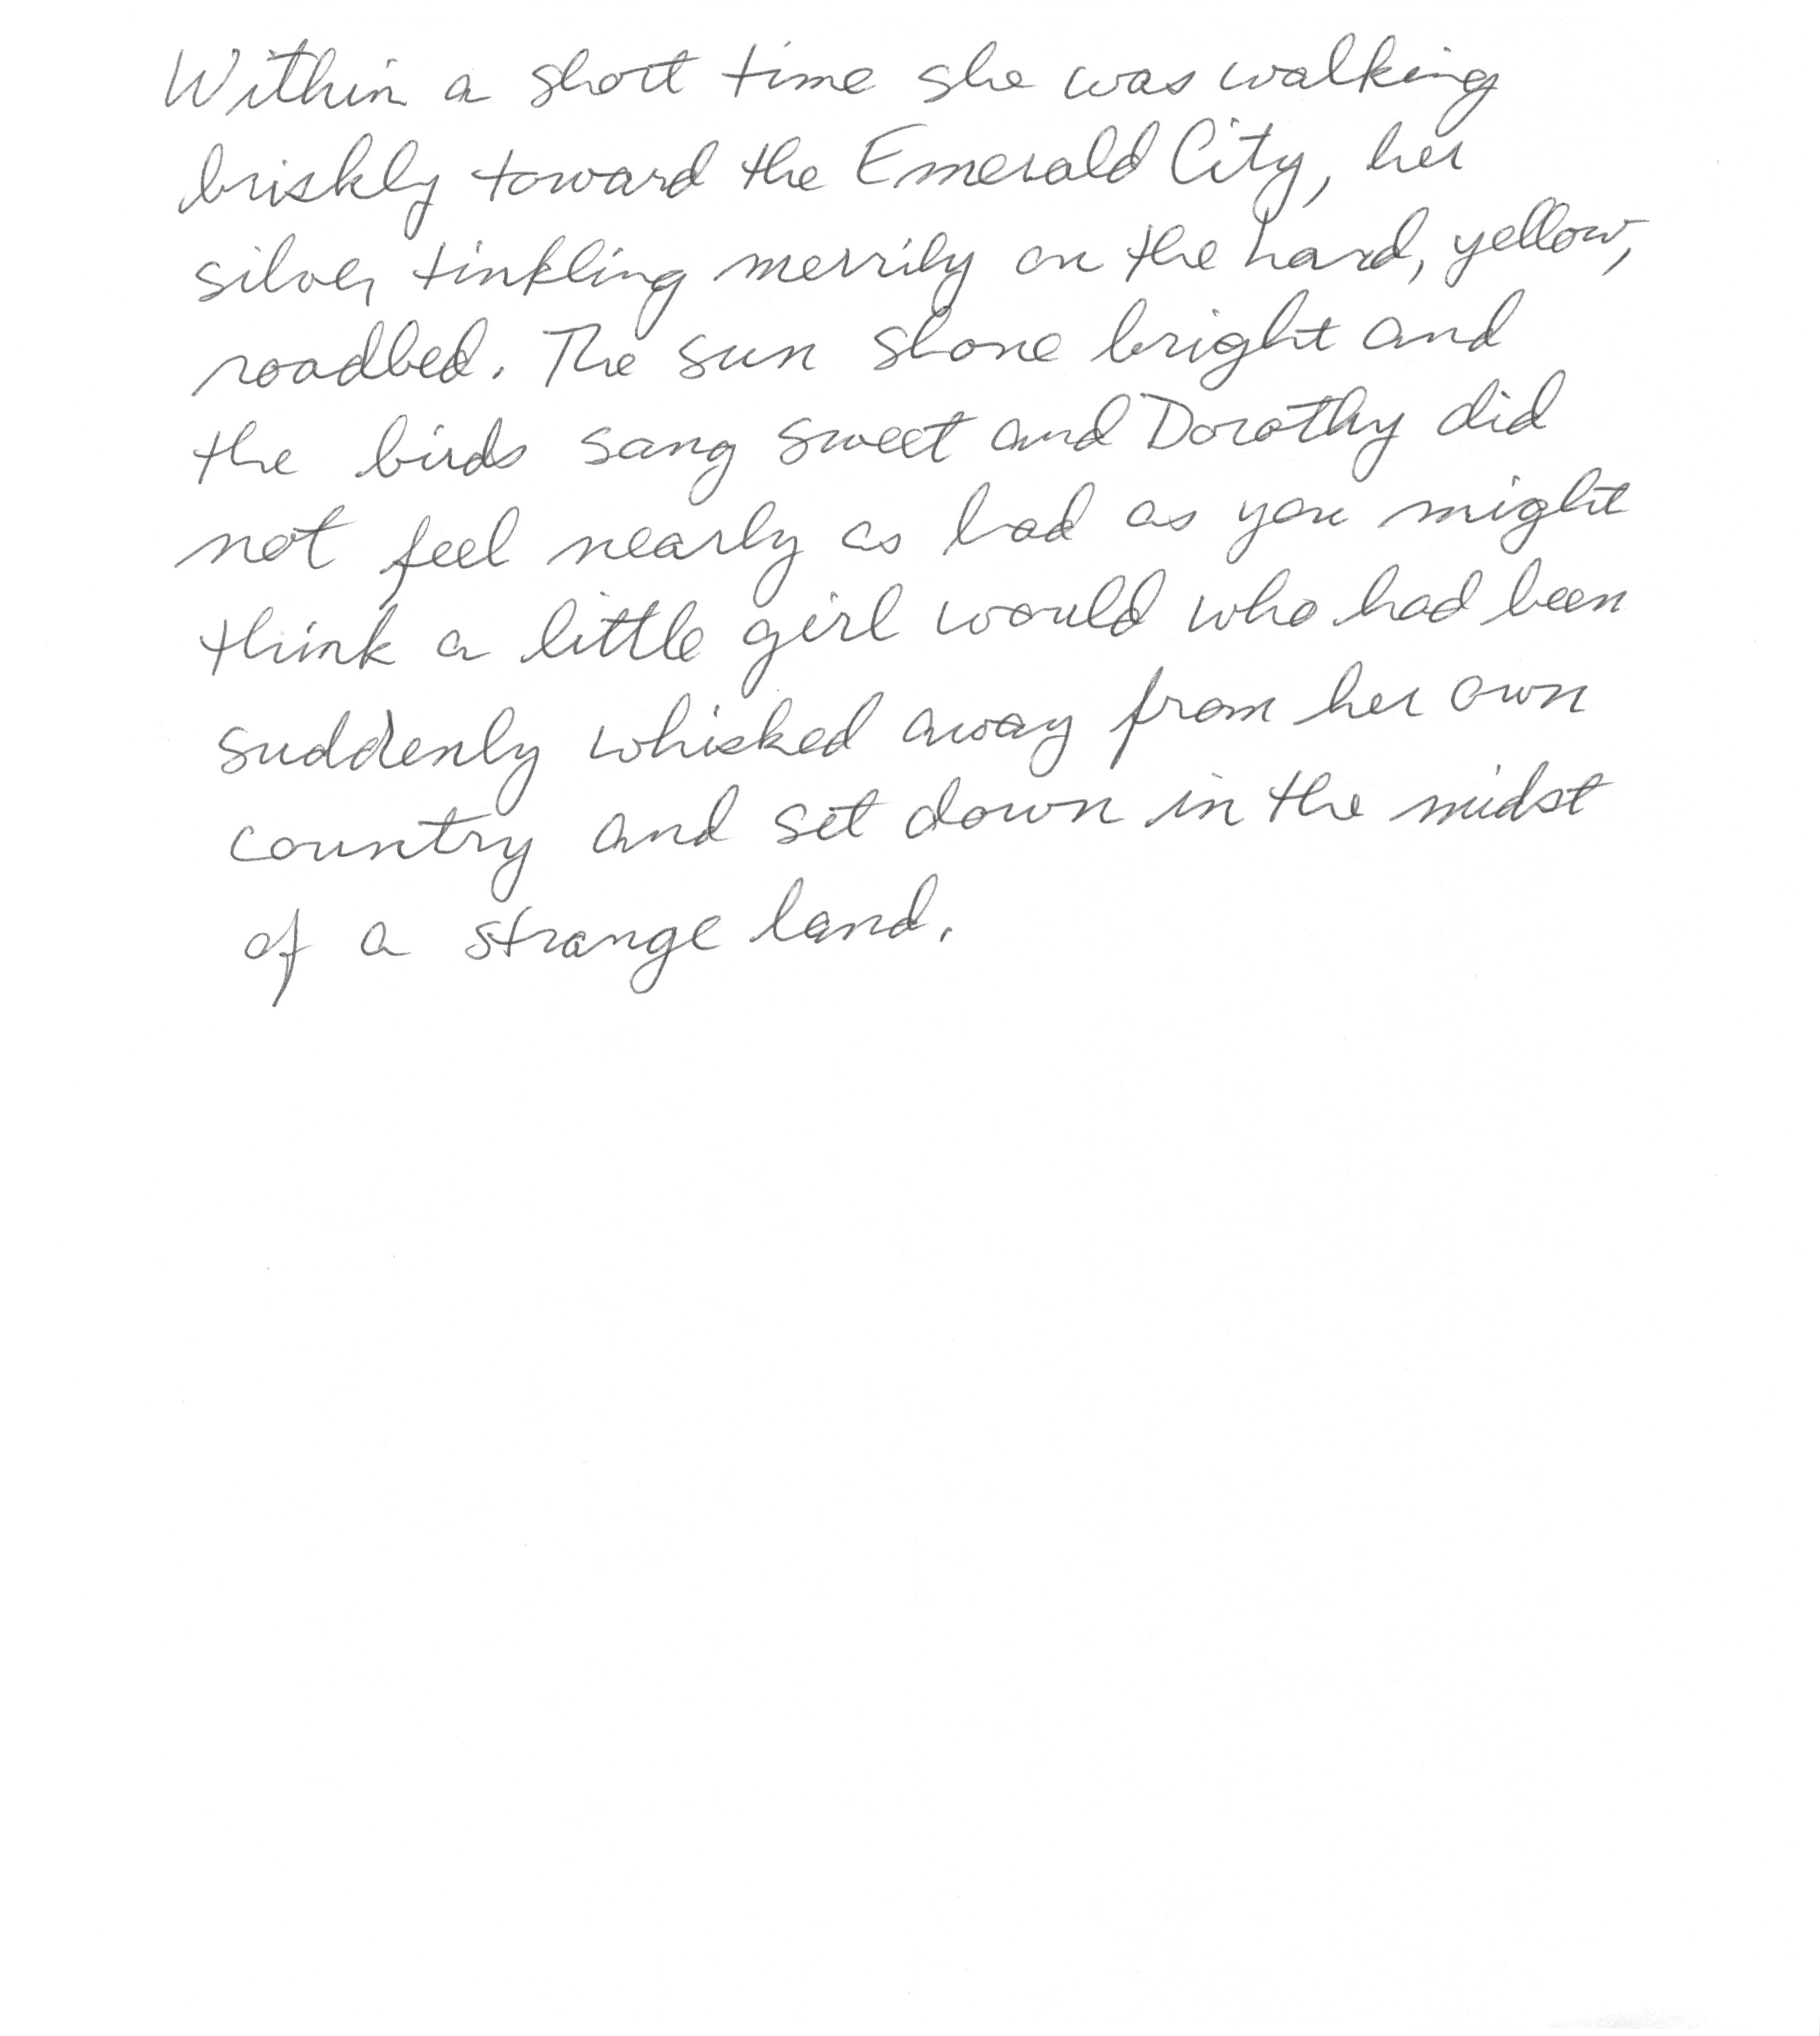 Within a short time she was walking
briskly toward the Emerald City, her
silver tinkling merrily on the hard, yellow,
roadbed. The sun shone bright and
the birds sang sweet and Dorothy did
not feel nearly as bad as you might
think a little girl would who had been
suddenly whisked away from her own
country and set down in the midst
of a strange land.